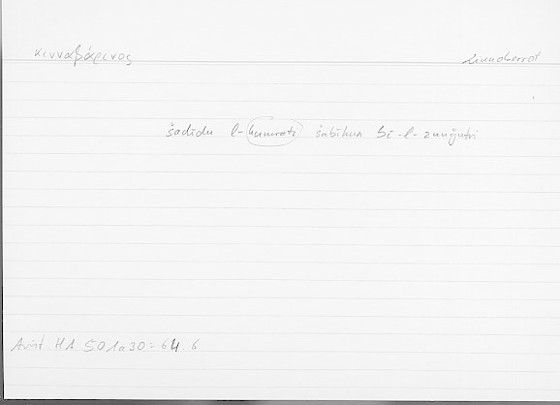 κινναβάρινος
zinnoberrot
šadīdu l-ḥumrati šabīhun bi-l-zunǧufri
Arist. HA 501a30 = 64.6